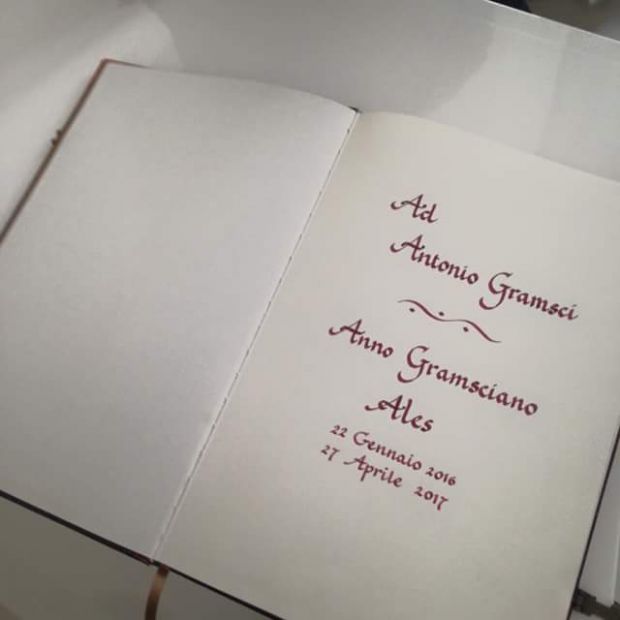 Ad
Antonio Gramsci
Anno Gramsciano
Ales
22 Gennaio 2016
27 Aprile 2017